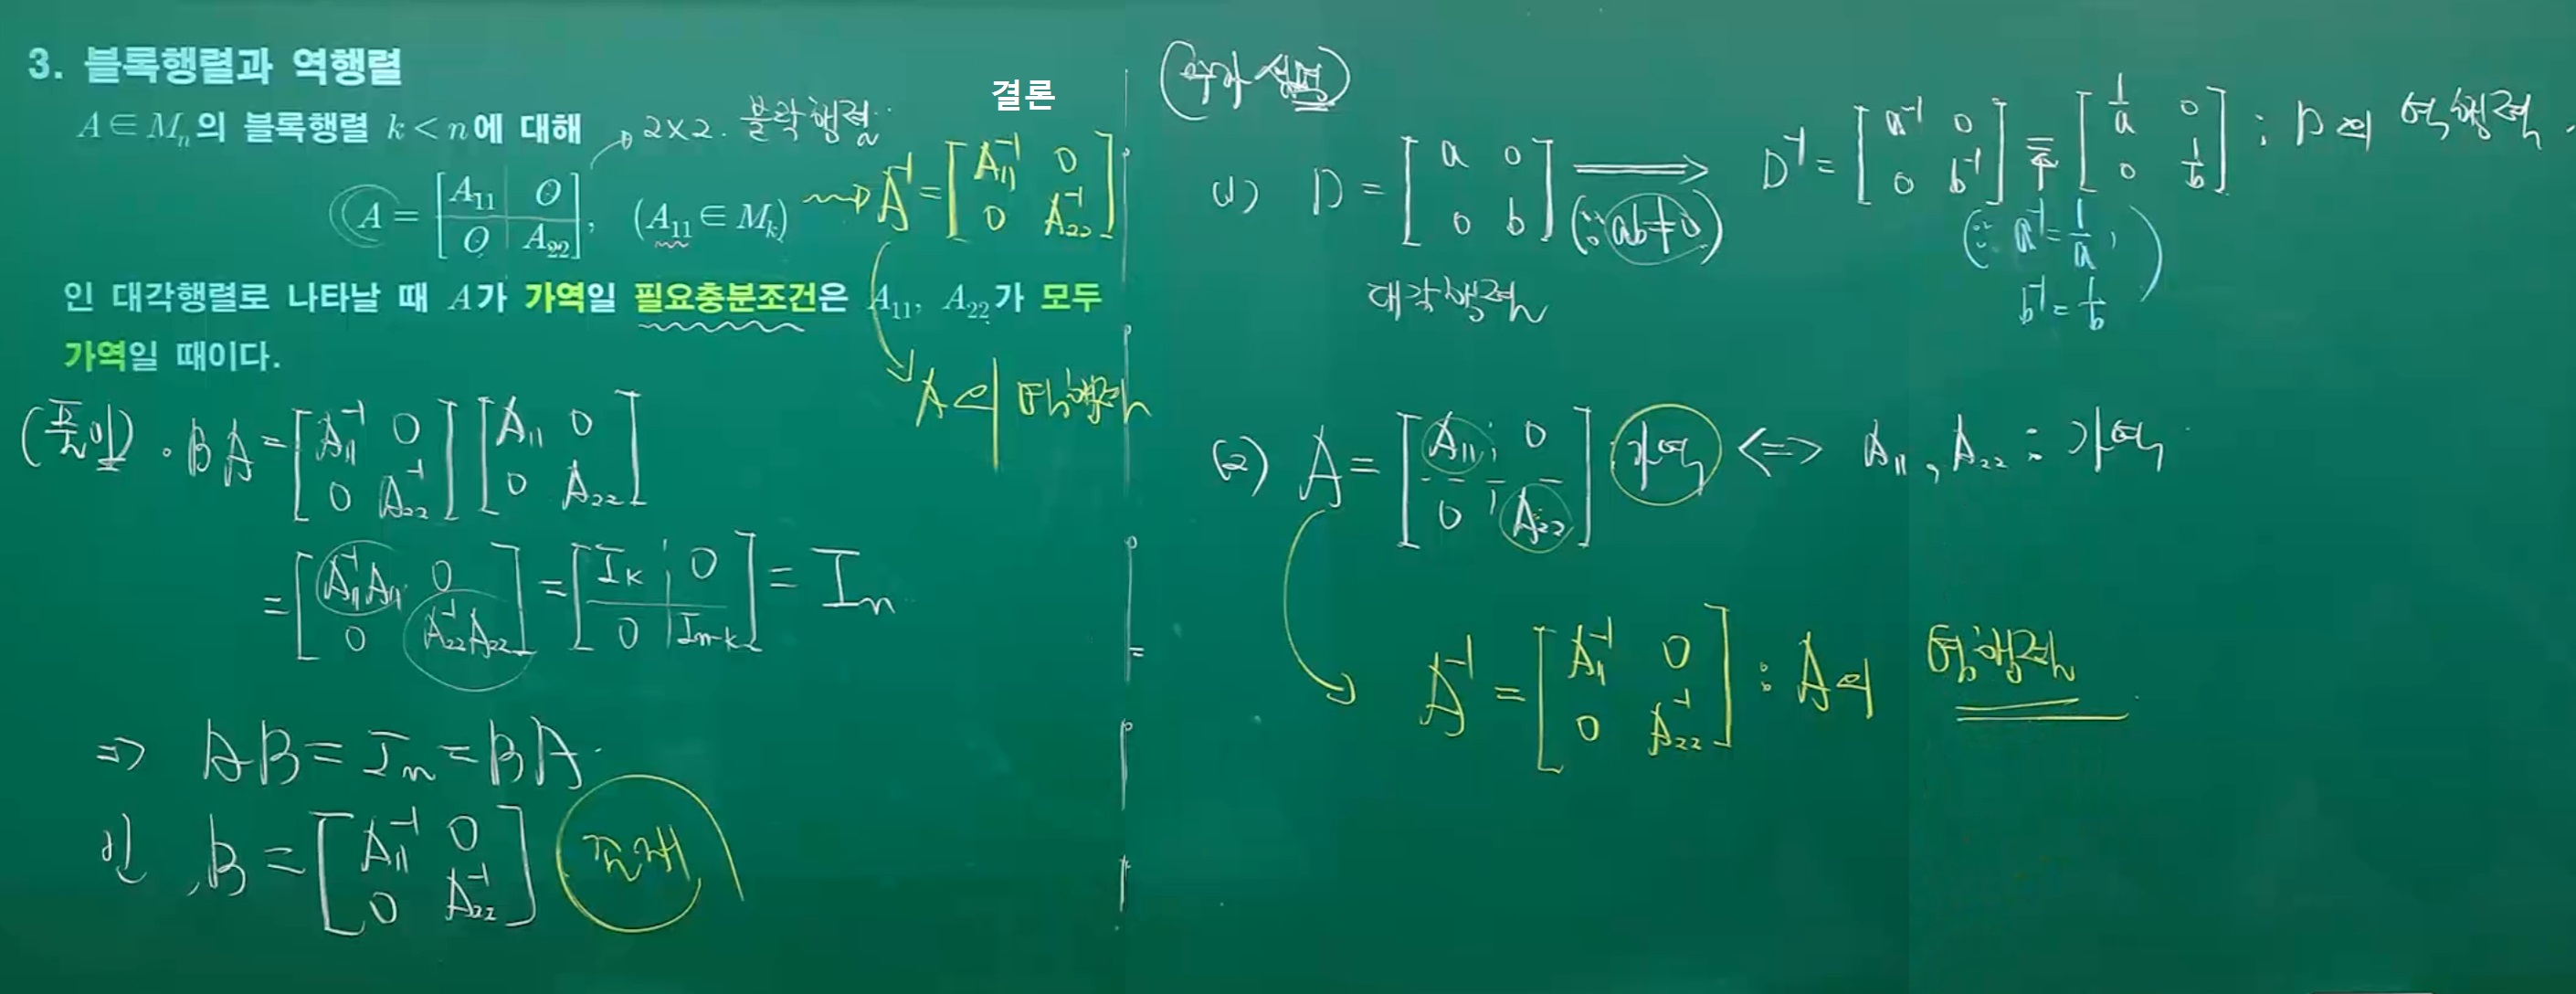 3. 블록행렬과 역행렬
A ∈ Mₙ의 블록행렬 k < n에 대해
2×2. 블락행렬
A = [A₁₁ O; O A₂₂], (A₁₁ ∈ Mₖ)
결론
A⁻¹ = [A₁₁⁻¹ 0; 0 A₂₂⁻¹]
인 대각행렬로 나타날 때 A가 가역일 필요충분조건은 A₁₁, A₂₂가 모두
가역일 때이다.
A의 역행렬
(풀이) · BA = [A₁₁⁻¹ 0; 0 A₂₂⁻¹] [A₁₁ 0; 0 A₂₂]
= [A₁₁⁻¹A₁₁ 0; 0 A₂₂⁻¹A₂₂] = [Iₖ 0; 0 Iₙ₋ₖ] = Iₙ
⇒ AB = Iₙ = BA.
인 B = [A₁₁⁻¹ 0; 0 A₂₂⁻¹] 존재
(추가 설명)
(1) D = [a 0; 0 b] ⟹ (∵ ab ≠ 0) D⁻¹ = [a⁻¹ 0; 0 b⁻¹] = [1/a 0; 0 1/b] : D의 역행렬.
대각행렬
(∵ a⁻¹ = 1/a,
b⁻¹ = 1/b)
(2) A = [A₁₁ 0; 0 A₂₂] 가역 ⟺ A₁₁, A₂₂ : 가역
A⁻¹ = [A₁₁⁻¹ 0; 0 A₂₂⁻¹] : A의 역행렬